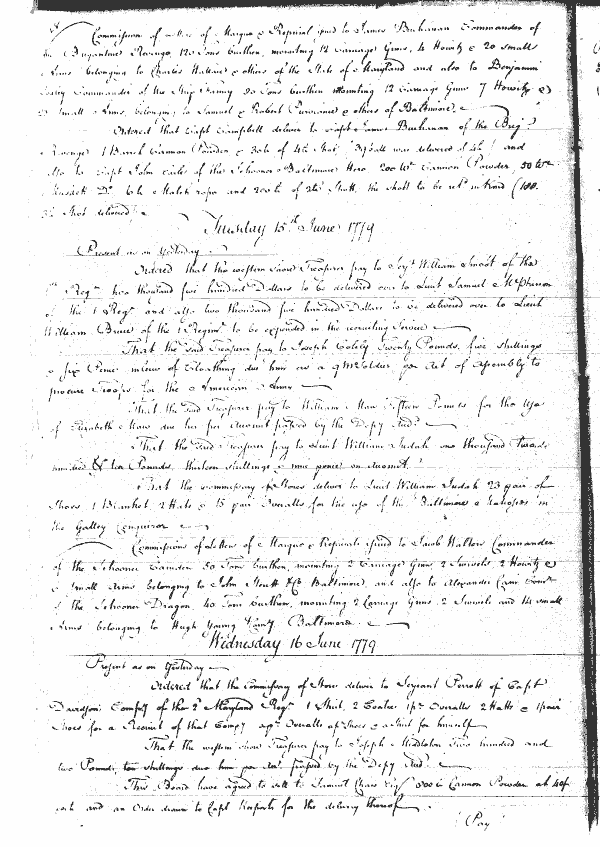 Commission of Letters of Marque & Reprisal issued to James Buchanan Commander of
the Brigantine Revenge, 120 Tons burthen, mounting 12 Carriage Guns, 4 Howitz & 20 small
Arms belonging to Charles Wallace & others of the State of Maryland and also to Benjamin
Commander of the Ship 80 Tons burthen mounting 12 Carriage Guns 7 Howitz &
small Arms, belonging to Samuel & Robert Purviance & others of Baltimore.
Ordered that Capt Campbell deliver to Capt James Buchanan of the Brig
Revenge 1 Barrel Cannon Powder & 30lb of 4lb Shot was delivered and
also to Capt John of the Schooner Baltimore Hero 200 wt Cannon Powder, 50 wt
Musket Do. 6lb Match rope and 200lb of Shott, the shott to be retd in kind (100
Shot delivered)
Tuesday 15th June 1779
Present as on Yesterday.
Ordered that the western Shore Treasurer pay to Serjt William Smoot of the
Regt two thousand five hundred Dollars to be delivered over to Lieut Samuel McPherson
of the 1 Regt and also two thousand five hundred Dollars to be delivered over to Lieut
William Bruce of the 1 Regimt to be expended in the recruiting Service
That the said Treasurer pay to Joseph Twenty Pounds, five shillings
& six Pence in lieu of Cloathing due him as a 9 Mo Soldier per Act of Assembly to
procure Troops for the American Army
That the said Treasurer pay to William Maw Fifteen Pounds for the Use
of Elizabeth Maw due her per Account passed by the Depy Audr
That the said Treasurer pay to Lieut William Judah one thousand two
hundred & ten Pounds, thirteen shillings & nine pence on Account.
That the commissary of Stores deliver to Lieut William Judah 23 pair of
Shoes 1 Blanket 2 Hats & 15 pair Overalls for the use of the Baltimore Matrosses in
the Galley Conqueror
Commissions of Letters of Marque & Reprisals issued to Jacob Walters Commander
of the Schooner Camden 50 Tons burthen, mounting 2 Carriage Guns, 2 Swivels, 2 Howitz &
small Arms belonging to John & Co Baltimore, and also to Alexander Cain Comr
of the Schooner Dragon, 40 Tons burthen, mounting 2 Carriage Guns, 2 Swivels and 14 small
Arms belonging to Hugh Young & Compy Baltimore.
Wednesday 16 June 1779
Present as on Yesterday
Ordered that the Commissary of Stores deliver to Serjeant Perrott of Capt
Davidsons Compy of the 2d Maryland Regt 1 Shirt, 2 Coats 1 pr Overalls 2 Hatts & 1 pair
Shoes for a Recruit of that Compy a pr Overalls a pr Shoes & a Shirt for himself
That the western Shore Treasurer pay to Joseph Middleton Two hundred and
two Pounds, ten shillings due him per Acct. passed by the Depy Audr
This Board have agreed to sell to Samuel Chase Esqr 500 lb Cannon Powder at 40/
each and an Order drawn to Capt Keeports for the delivery thereof
Pay